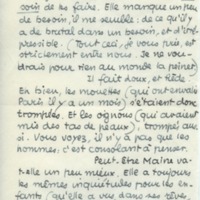 soin de les faire. Elle manque un peu
de besoin, il me semble: de ce qu'il y
a de brutal dans un besoin, et d'irré-
pressible. (Tout ceci, je vous prie, est
strictement entre nous. Je ne vou-
drais pour rien au monde la peiner)
Il fait doux, et tiède.
En bien, les mouettes (qui ont envahi
Paris il y a un mois) s'étaient donc
trompées. Et les oignons (qui avaient
mis des tas de peaux), trompés aus-
si. Vous voyez, il n'y a pas que les
hommes; c'est consolant à penser.
Peut-être Maine va-
t-elle un peu mieux. Elle a toujours
les mêmes inquiétudes pour les en-
fants (qu'elle a vus dans ses rêves,